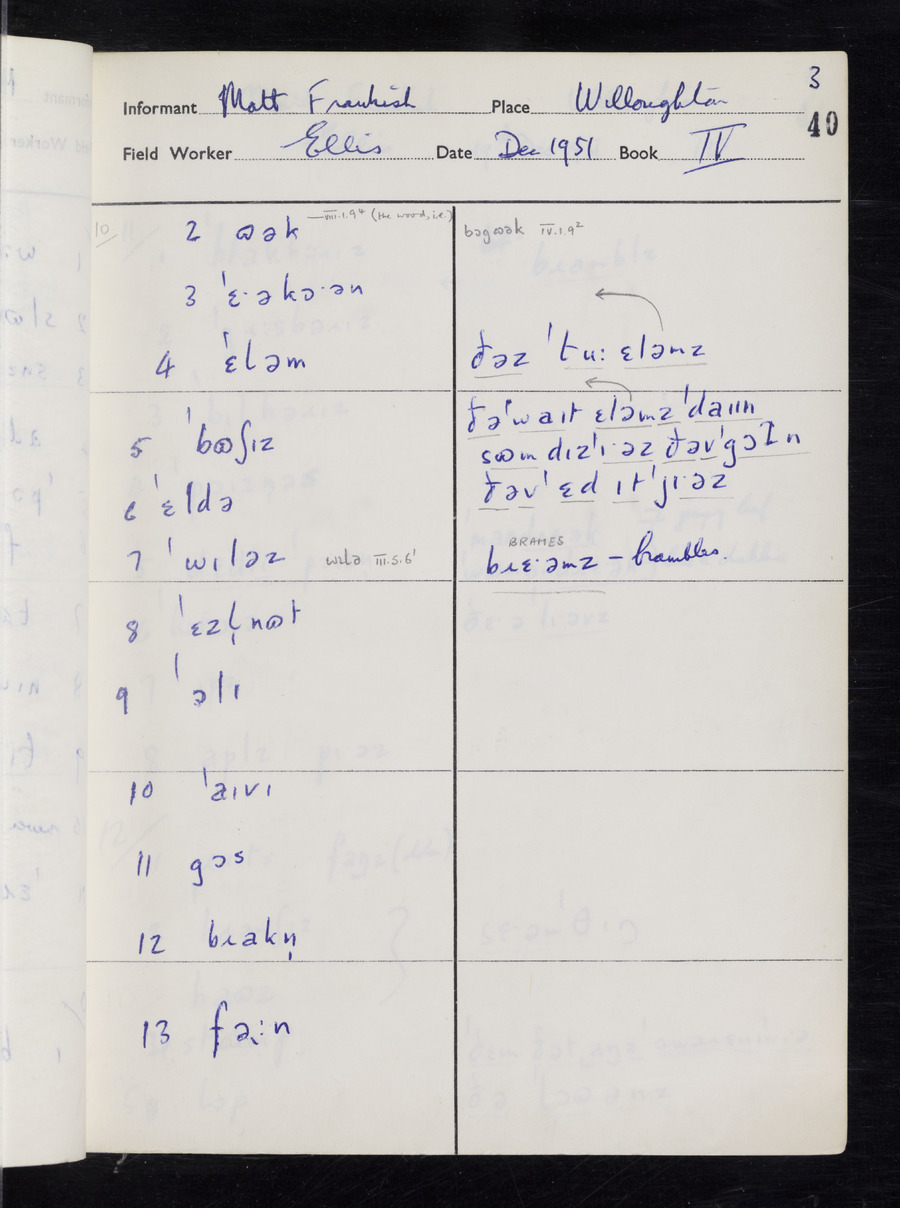 3
Informant Matt Frankish Place Willoughton
40
Field Worker Ellis Date Dec 1951 Book IV
10
2 ɷək —VIII.1.9⁴ (the wood, i.e.)
bɔgɷək IV.1.9²
3 ˈɛ·əkɔ·ən
4 ˈɛləm
ðəz ˈtu: ɛləmz
5 ˈbɷʃɪz
ðəˈwaɪt ɛləmzˈdaɪɪn
sɷm dɪzˈɪ·əz ðəvˈgɔɪn
6 ˈɛldə
ðəvˈɛd ɪtˈjɪ·əz
7 ˈwɪləz wɪlə III.5.6¹
BRAMES
bɹɛ·əmz – brambles.
8 ˈɛzl̩nɷt
9 ˈɔlɪ
10 ˈaɪvɪ
11 gɔs
12 bɹakn̩
13 fə:n